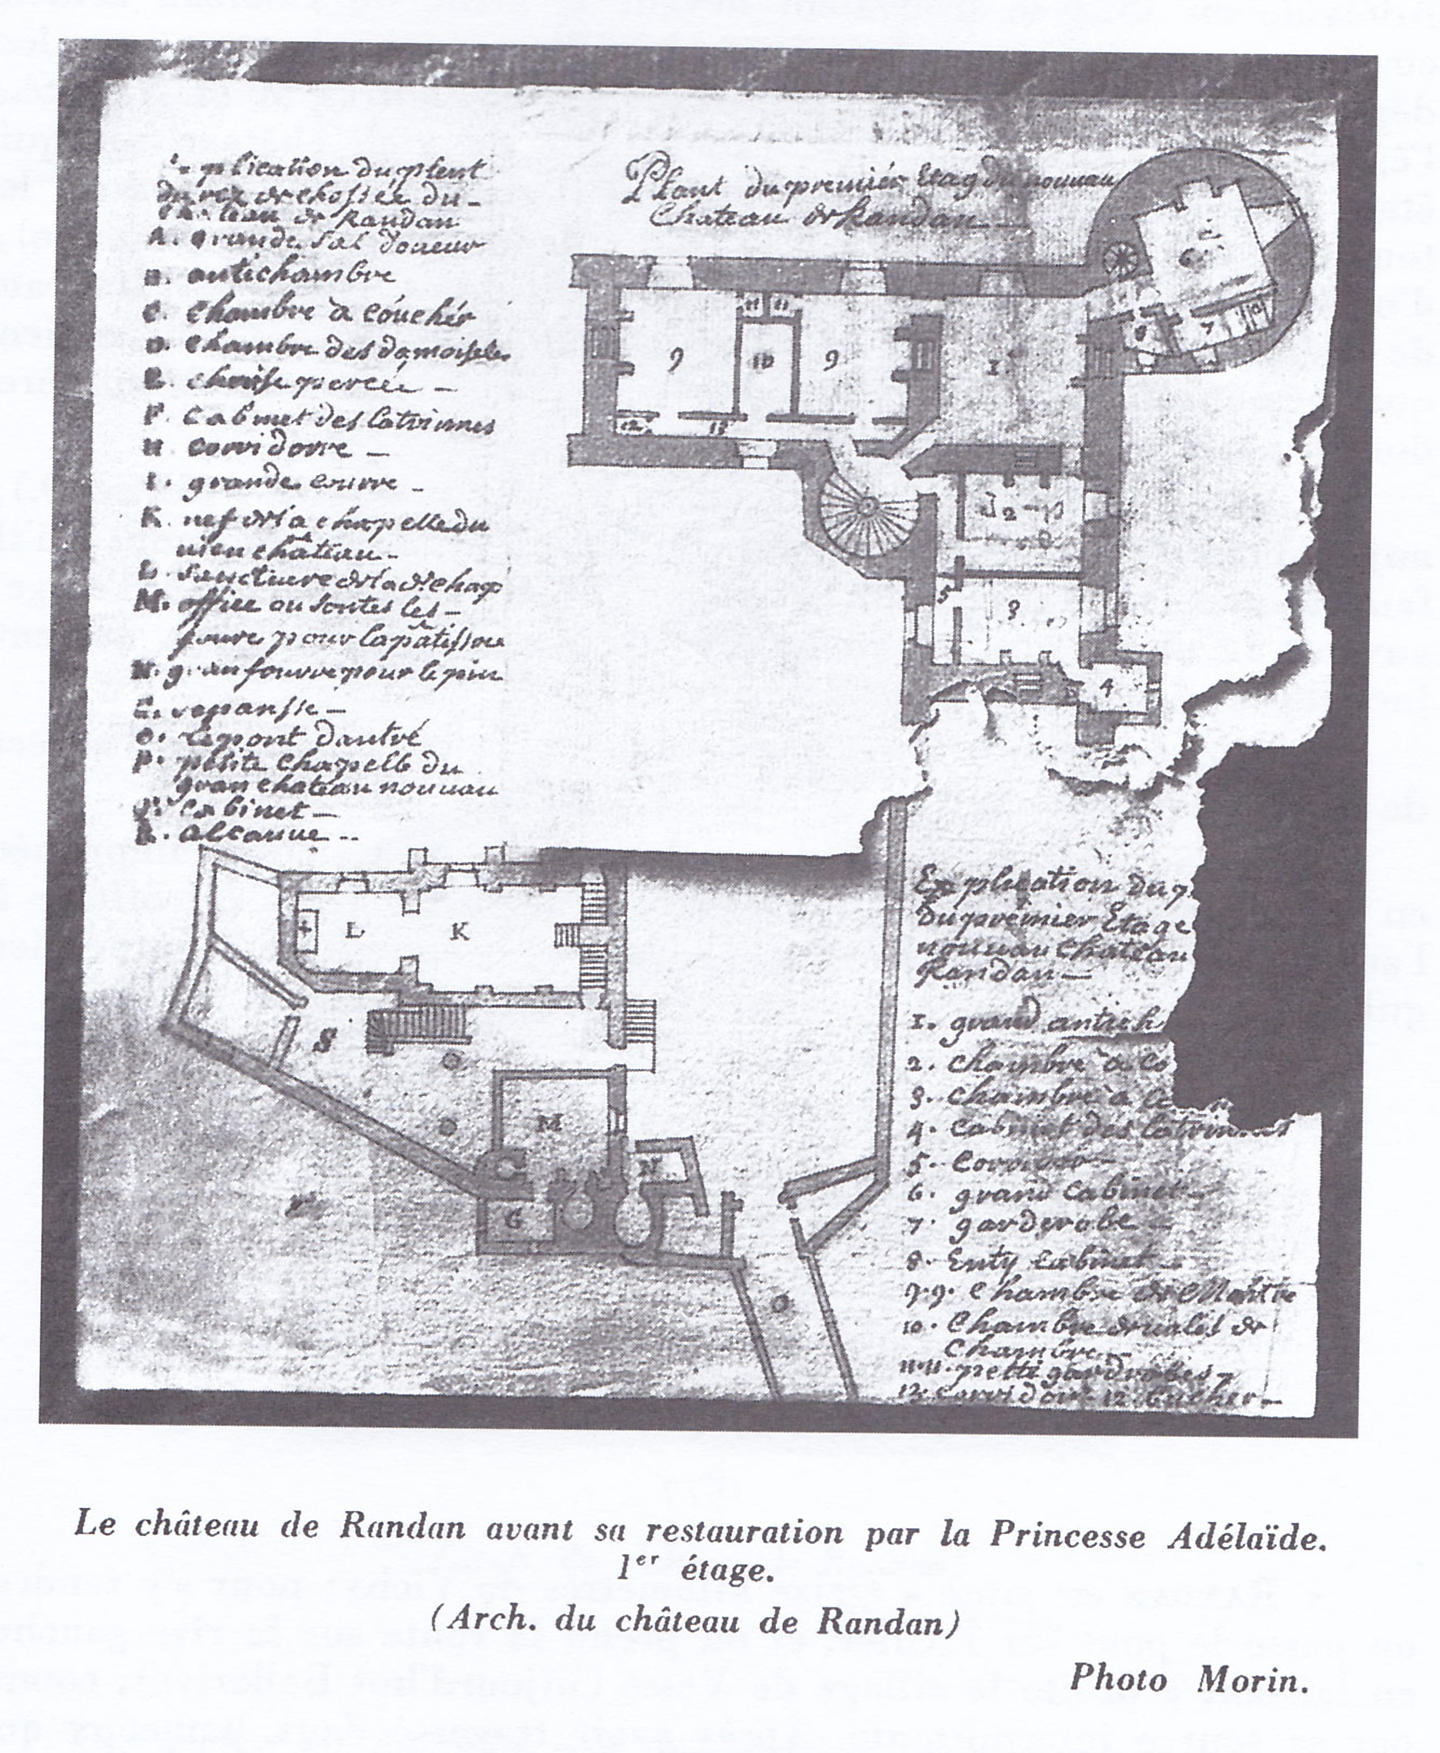 Explication du plent
du rez de chossée du
chateau de Randan
A. grande sal doueur
B. antichambre
C. chambre à couchér
D. chambre des damoiseles
E. chaise percée
F. cabinet des latrinnes
H. corridorre
I. grande courre
K. nef de la chapelle du
vieu château
L. sanctuere de la dte chap
M. office ou sontes les
foure pour la patisserie
N. g. an fourre pour le pin
O. le pont dantré
P. petite chapelle du
gran chateau nouuau
Q. cabinet
R. alcauue
Plant du premiér Etag du nouuau
Chateau de Randan
9 11 11 10 9 1 6 8 7 10
12 13
2
5 3
4
L K
S
M
N
G
Explication du p
du premier Etage
nouuau chateau
Randan
1. grand antich
2. chambre à co
3. chambre à co
4. cabinet des latrinnes
5. corridor
6. grand cabinet
7. garderobe
8. cabinet
9.9. chambre de
10. Chambre de valés de
Chambre
11.11. petti gardrobes
12. corridor 12.
Le château de Randan avant sa restauration par la Princesse Adélaïde.
1er étage.
(Arch. du château de Randan)
Photo Morin.